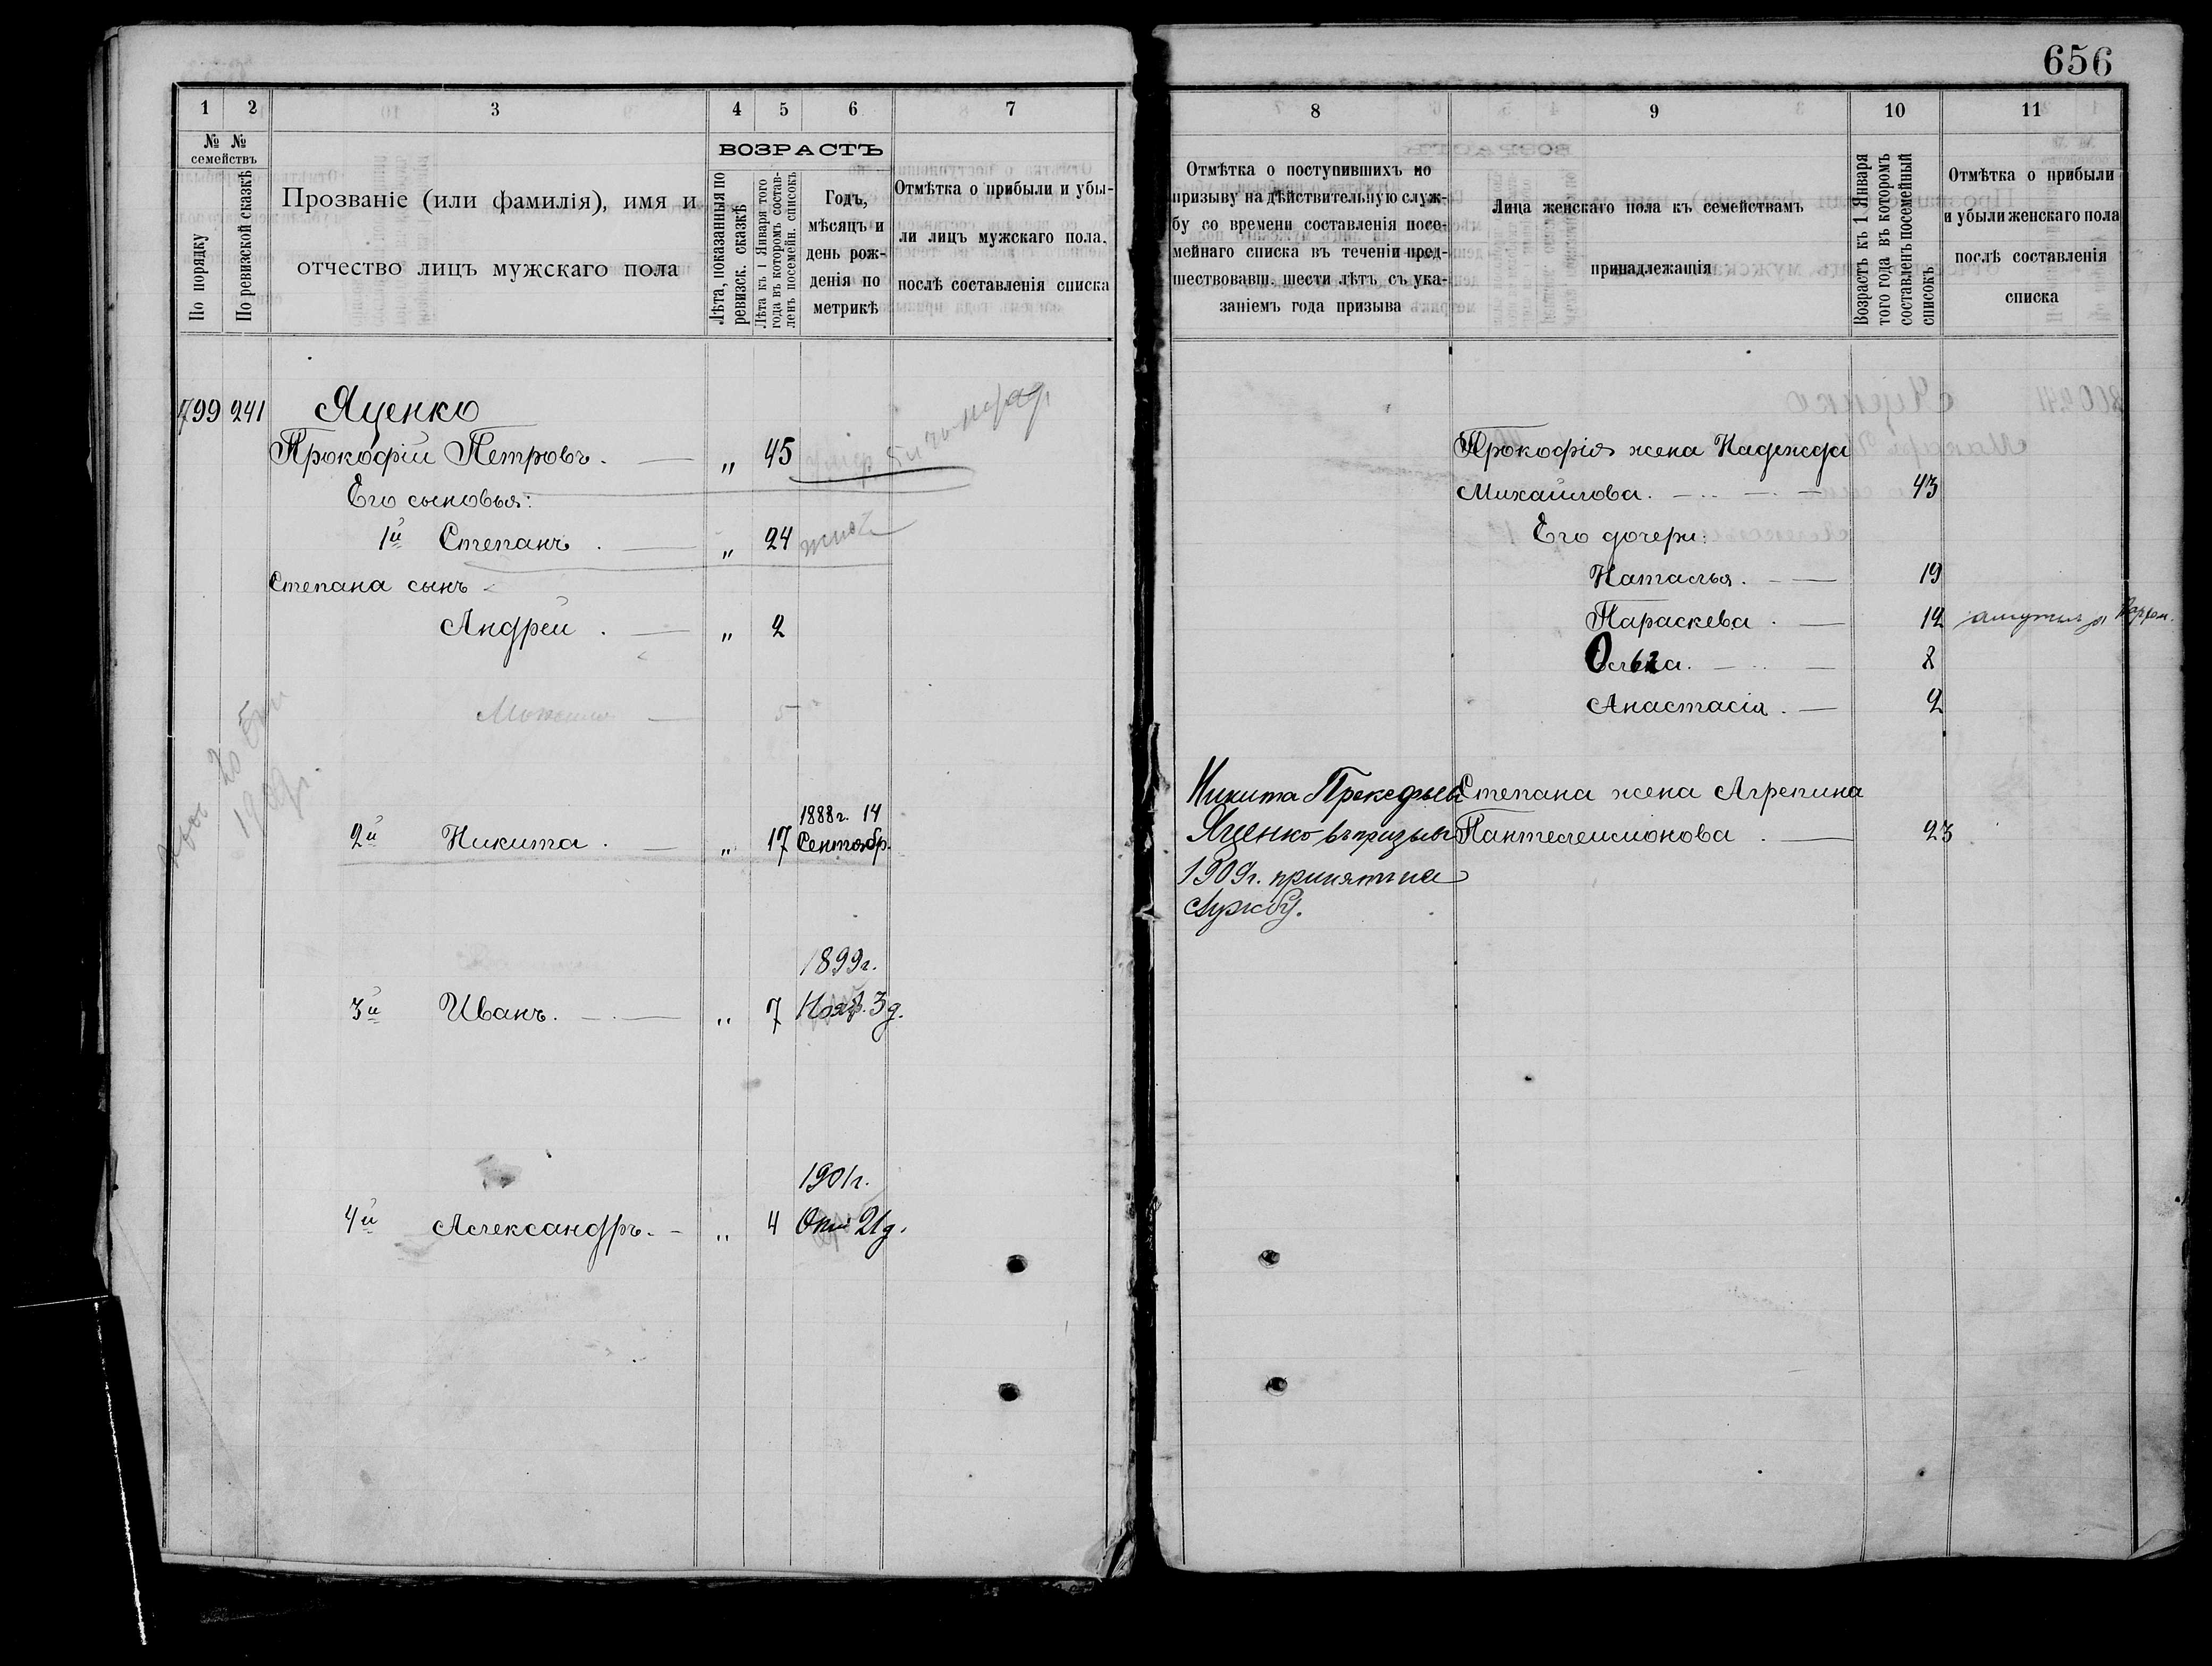 656
1 2 3 4 5 6 7
№ № семействъ
По порядку
По ревизской сказкѣ
Прозваніе (или фамилія), имя и
отчество лицъ мужскаго пола
ВОЗРАСТЪ
Лѣта, показанныя по
ревизск. сказкѣ
Лѣта къ 1 Января того
года въ которомъ состав-
ленъ посемейн. списокъ
Годъ,
мѣсяцъ и
день рож-
денія по
метрикѣ
Отмѣтка о прибыли и убы-
ли лицъ мужскаго пола,
послѣ составленія списка
799 241 Яценко
Прокофій Петровъ. — „ 45 умер
Его сыновья:
1й Степанъ. — „ 24
Степана сынъ
Андрей. — „ 2
5
1888г. 14
2й Никита. — „ 17 Сентябр.
1899г.
3й Иванъ. — „ 7 Нояб. 3д.
1901г.
4й Александръ. - „ 4 Окт 21д.
8 9 10 11
Отмѣтка о поступившихъ по
призыву на дѣйствительную служ-
бу со времени составленія посе-
мейнаго списка въ теченіи пред-
шествовавш. шести лѣтъ съ ука-
заніемъ года призыва
Лица женскаго пола къ семействамъ
принадлежащія
Возрастъ къ 1 Января
того года въ которомъ
составленъ посемейный
списокъ
Отмѣтка о прибыли
и убыли женскаго пола
послѣ составленія
списка
Прокофія жена Надежда
Михайлова. — 43
Его дочери:
Наталья. — 19
Параскева. — 12
8
Анастасія. — 2
Степана жена Агрепина
Пантелеимонова. — 23
Никита Прокофьевъ
Яценко въ призывъ
1909г. принятъ на
службу.